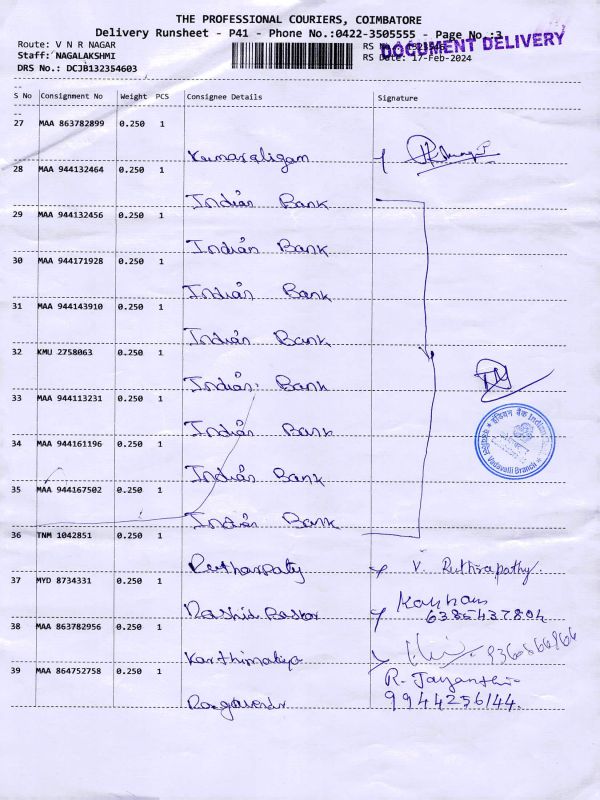 THE PROFESSIONAL COURIERS, COIMBATORE
Delivery Runsheet - P41 - Phone No.:0422-3505555 - Page No.:3
DOCUMENT DELIVERY
Route: V N R NAGAR
RS
Staff: NAGALAKSHMI
RS Date: 17-Feb-2024
DRS No.: DCJB132354603
S No Consignment No Weight PCS Consignee Details Signature
27 MAA 863782899 0.250 1
28 MAA 944132464 0.250 1
Indian Bank
29 MAA 944132456 0.250 1
Indian Bank
30 MAA 944171928 0.250 1
Indian Bank
31 MAA 944143910 0.250 1
Indian Bank
32 KMU 2758063 0.250 1
Indian Bank
33 MAA 944113231 0.250 1
Indian Bank
34 MAA 944161196 0.250 1
Indian Bank
35 MAA 944167502 0.250 1
Indian Bank
इंडियन बैंक Indian
Vadavalli Branch
36 TNM 1042851 0.250 1
V. Ruthrapathy
37 MYD 8734331 0.250 1
38 MAA 863782956 0.250 1
39 MAA 864752758 0.250 1
R. Jayanthi
9944256144